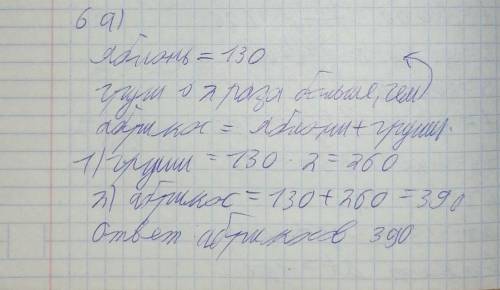 6 а)
Яблонь = 130
груш в 2 раза больше, чем
абрикос = яблони + груши.
1) груши = 130 · 2 = 260
2) абрикос = 130 + 260 = 390
Ответ абрикосов 390